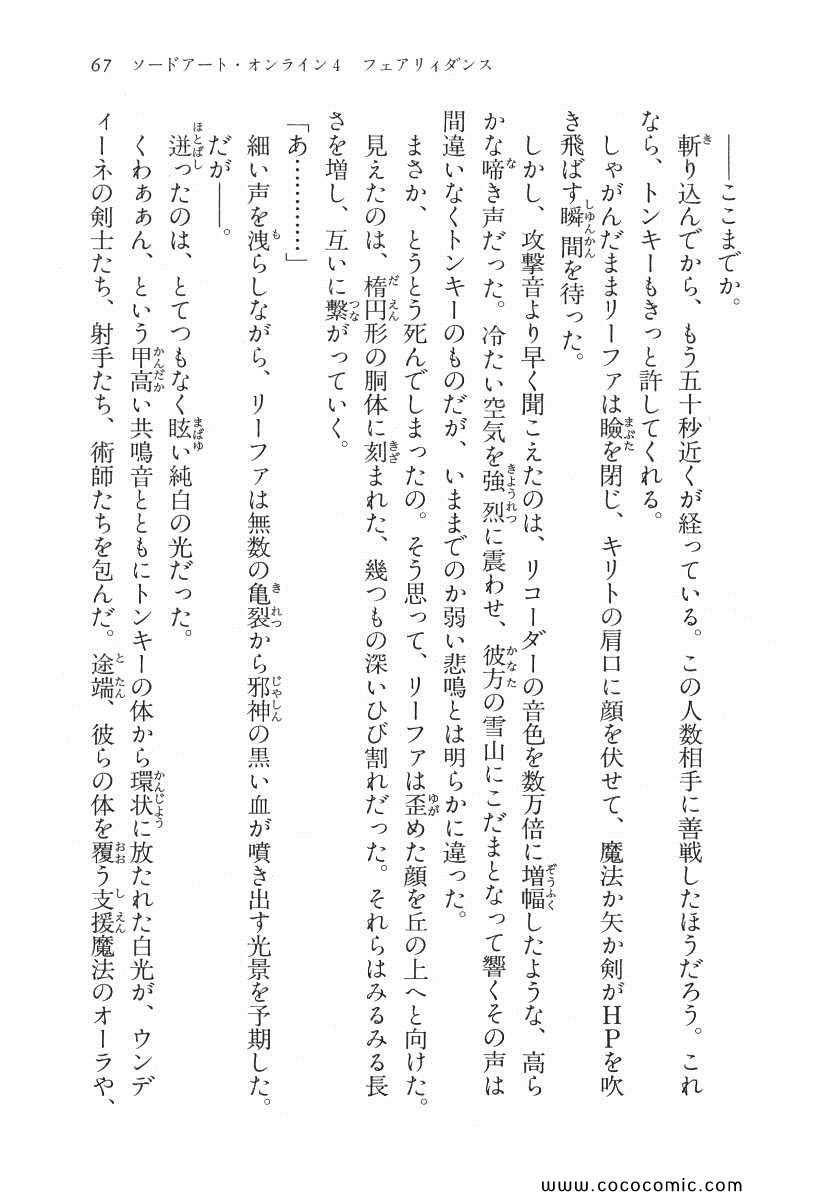 67　ソードアート・オンライン4　フェアリィダンス
――ここまでか。
斬り込んでから、もう五十秒近くが経っている。この人数相手に善戦したほうだろう。これ
なら、トンキーもきっと許してくれる。
しゃがんだままリーファは瞼を閉じ、キリトの肩口に顔を伏せて、魔法か矢か剣がＨＰを吹
き飛ばす瞬間を待った。
しかし、攻撃音より早く聞こえたのは、リコーダーの音色を数万倍に増幅したような、高ら
かな啼き声だった。冷たい空気を強烈に震わせ、彼方の雪山にこだまとなって響くその声は
間違いなくトンキーのものだが、いままでのか弱い悲鳴とは明らかに違った。
まさか、とうとう死んでしまったの。そう思って、リーファは歪めた顔を丘の上へと向けた。
見えたのは、楕円形の胴体に刻まれた、幾つもの深いひび割れだった。それらはみるみる長
さを増し、互いに繋がっていく。
「あ…………」
細い声を洩らしながら、リーファは無数の亀裂から邪神の黒い血が噴き出す光景を予期した。
だが――。
迸ったのは、とてつもなく眩い純白の光だった。
くわぁぁん、という甲高い共鳴音とともにトンキーの体から環状に放たれた白光が、ウンデ
ィーネの剣士たち、射手たち、術師たちを包んだ。途端、彼らの体を覆う支援魔法のオーラや、
www.cococomic.com